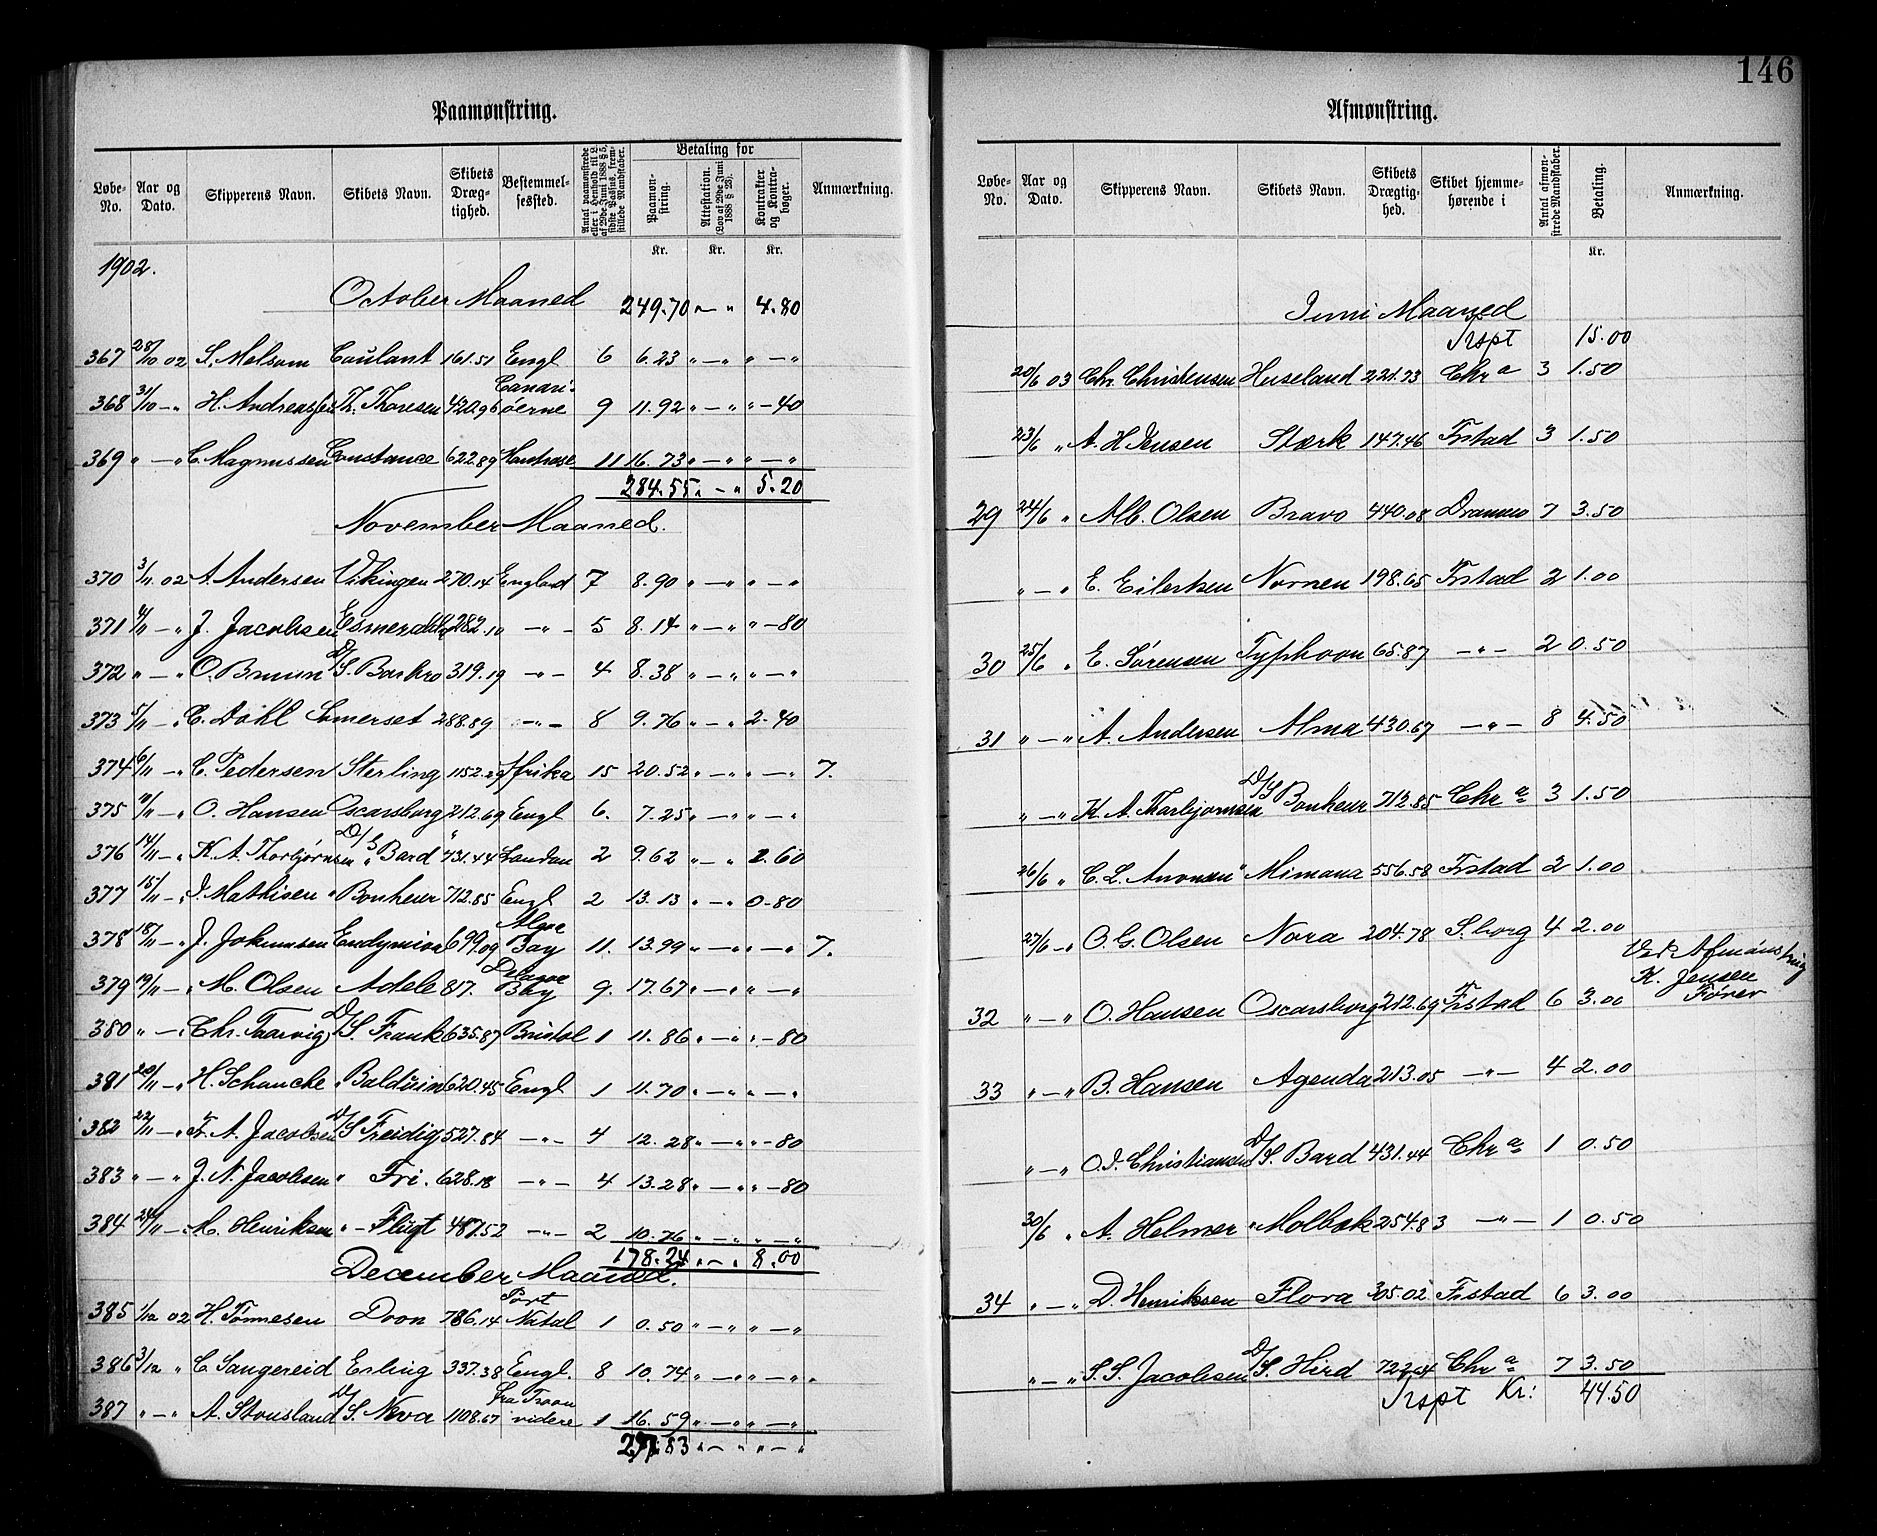 146
Paamønstring.
Løbe-No. Aar og Dato. Skipperens Navn. Skibets Navn. Skibets Dræg-tighed. Bestemmel-sessted. Antal paamønstrede eller i Henhold til L. af 29de Juni 1888 § 5, sidste Passus, frem-stillede Mandskaber. Betaling for Paamøn-string. Attestation. (Lov af 29de Juni 1888 § 26). Kontrakter og Kontra-bøger. Anmærkning.
Kr. Kr. Kr.
1902.
October Maaned 249.70 " — " 4.80
367 28/10 02 S. Melsom Coulant 161.51 Engl 6 6.23 " — " " — "
368 31/10 — " H. Andreassen Th. Thoresen 420.96 Canari-øerne 9 11.92 " — " " — 40
369 " — " C. Magnussen Constance 622.89 Montrose 11 16.73 " — " " — "
284.55 " — " 5.20
November Maaned.
370 3/11 02 A. Andersen Vikingen 270.14 England 7 8.90 " — " " — "
371 4/11 — " J. Jacobsen Esmeralda 282.10 — " — 5 8.14 " — " " — 80
372 " — " O. Bruun D/S. Barbro 319.19 — " — 4 8.38 " — " " — "
373 5/11 — " C. Dahl Somerset 288.89 — " — 8 9.76 " — " 2.40
374 6/11 — " C. Pedersen Sterling 1152.29 Afrika 15 20.52 " — " " — " 7.
375 11/11 — " O. Hansen Oscarsborg 212.69 Engl 6. 7.25 " — " " — "
376 14/11 — " K. A. Thorbjørnsen D/S " Bard 731.44 London 2 9.62 " — " 1.60
377 15/11 — " I. Mathisen " Bonheur 712.85 Engl 2 13.13 " — " 0.80
378 18/11 — " J. Johannsen Endymion 699.09 Algoa Bay 11. 13.99 " — " " — " 7.
379 19/11 — " M. Olsen Adele 817. Delagoa Bay 9. 17.67 " — " " — "
380 " — " Chr. Taarvig D/S. Frank 635.87 Bristol 1 11.86 " — " " — 80
381 20/11 — " H. Schancke " Baldwin 620.45 Engl 1 11.70 " — " " — "
382 22/11 — " Fr. A. Jacobsen D/S Freidig 527.84 — " — 4 12.28 " — " " — 80
383 " — " J. N. Jacobsen " Fri. 628.18 — " — 4 13.28 " — " " — 80
384 24/11 — " M. Henriksen " — Flügt 487.52 — " — 2 10.76 " — " " — "
178.24 " — " 8.00
December Maaned.
385 1/12 02 H. Tønnesen Doon 786.14 Port Natal 1 0.50 " — " " — "
386 3/12 " C Sangereid Erling 337.38 Engl. 8 10.74 " — " " — "
387 " — " A. Stousland D/S. Neva 1108.67 fra Troon videre 1 16.59 " — " " — "
83 " — " " — "
Afmønstring.
Løbe-No. Aar og Dato. Skipperens Navn. Skibets Navn. Skibets Drægtig-hed. Skibet hjemme-hørende i Antal afmøn-strede Mandskaber. Betaling. Anmærkning.
Kr.
Juni Maaned
Trspt 15.00
20/6 03 Chr. Christensen Huseland 221.73 Chr a 3 1.50
23/6 " A. H. Jensen Stærk 147.46 Frstad 3 1.50
29 24/6 " Alb. Olsen Bravo 440.08 Drammen 7 3.50
" — " E. Eilertsen Nornen 198.65 Frstad 2 1.00
30 25/6 " E. Sørensen Typhoon 65.87 — " — 2 0.50
31 " — " A. Andersen Alma 430.67 — " — 8 4.50
" — " K. A. Thorbjørnsen D/S Bonheur 712.85 Chr a 3 1.50
26/6 " C. L. Aronsen " Mimona 556.58 Frstad 2 1.00
27/6 — " O. G. Olsen Nora 204.78 S.borg 4 2.00
32 " — " O. Hansen Oscarsborg 212.69 Frstad 6 3.00 Ved Afmønstring K. Jensen Fører
33 " — " B. Hansen Agenda 213.05 — " — 4 2.00
" — " O. I. Christiansen D/S. Bard 431.44 Chr a 1 0.50
30/6 " A. Helmer " Molbæk 254.83 — " — 1 0.50
34 " — " D. Henriksen Flora 305.02 Frstad 6 3.00
" — " S. S. Jacobsen D/S. Hird 722.64 Chr a 7 3.50
Trspt Kr: 44.50